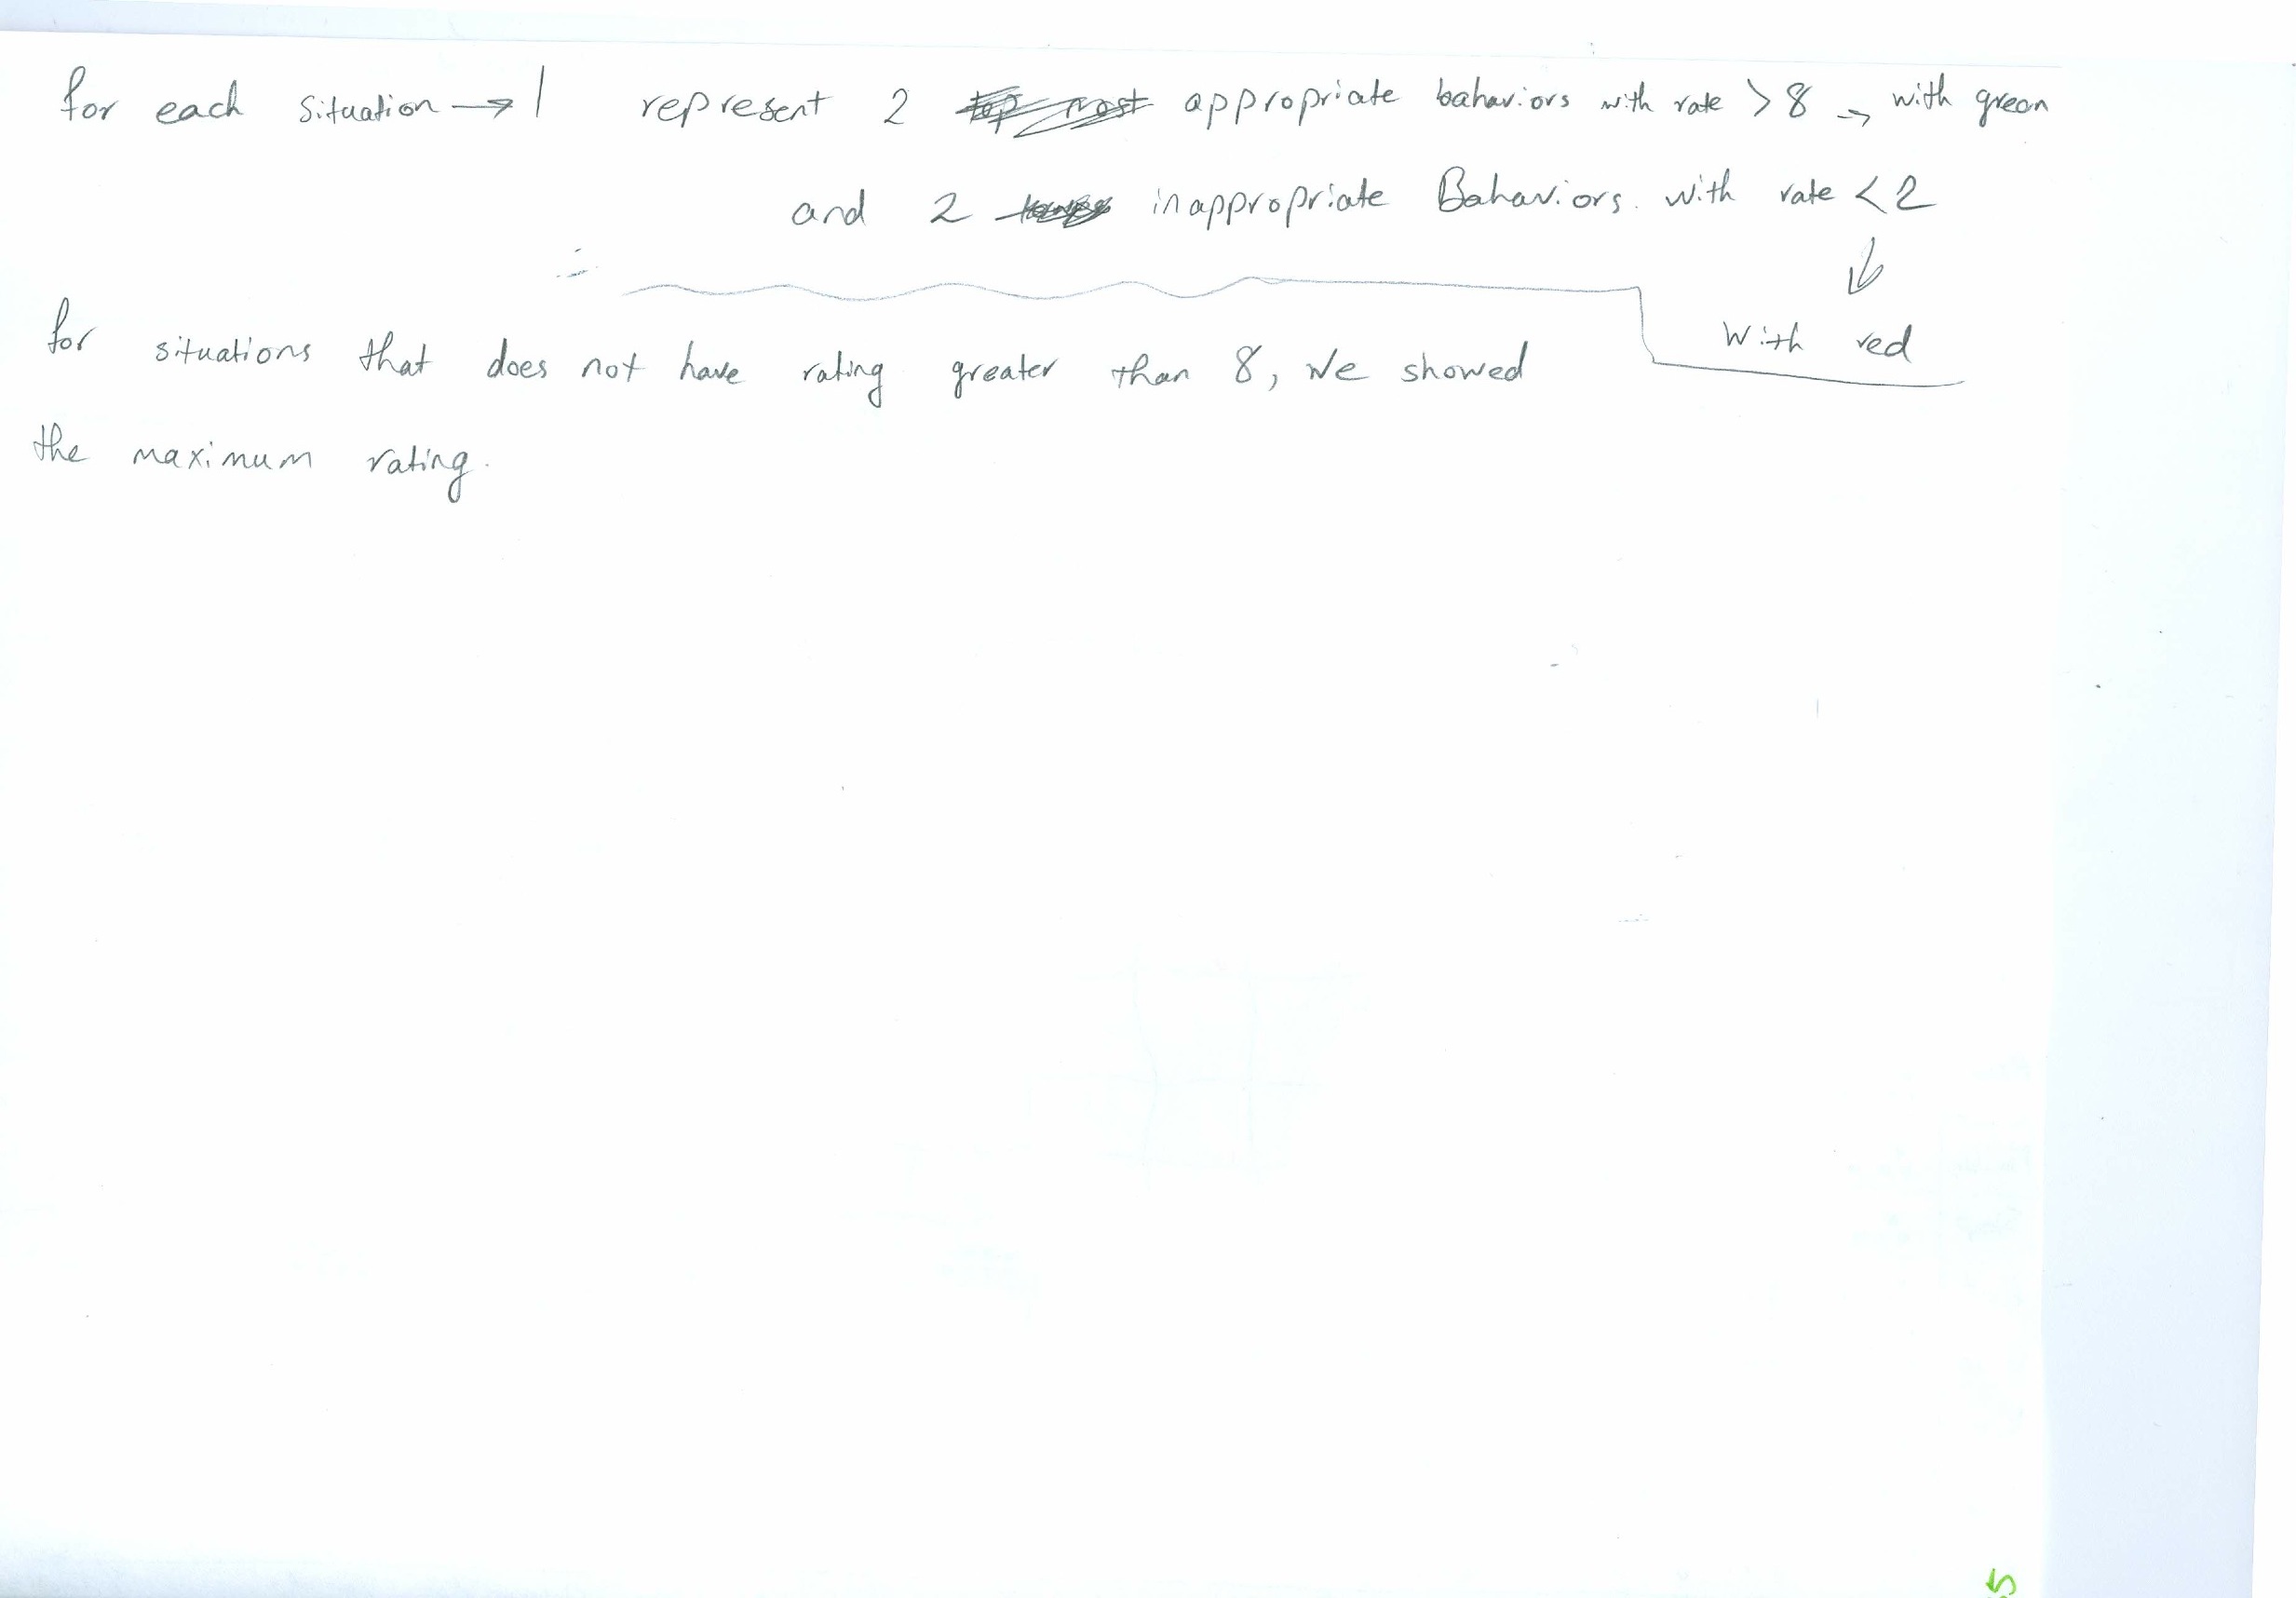 for each situation → | represent 2 top most appropriate bahaviors with rate > 8 → with green
and 2 inappropriate Bahaviors. with rate < 2
↓
with red
for situations that does not have rating greater than 8, we showed
the maximum rating.
5